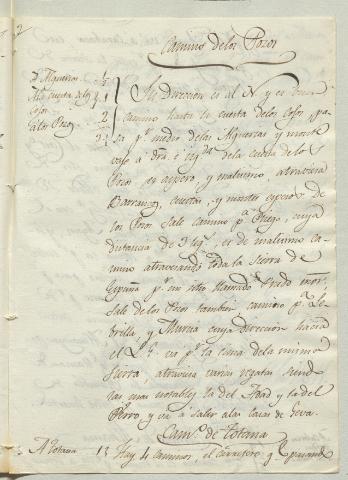 2
Camino de los Pozos
D. Algueros
Ala cuesta de los
Cosos
a los Pozos
Su Direccion es al N y es buen
camino hasta la cuesta de los Cosos, pa
sa pr. medio de las Alguezas y monte
vajo a dra. e izqda. de la cuesta de los
Pozos es aspero y malisimo, atraviesa
Barrancos, cuestas, y montes espesos de
los Pozos sale camino pa. Pliego, cuya
distancia de 3 leqs. es de malisimo ca-
mino atravesando toda la Sierra de
Espuña pr. un sitio llamado Prado mor
Sale de los Pozos tambien camino pa. Le
brilla, y Murcia cuya Direccion hacia
el L. va pr. la cima de la misma
Sierra, atraviesa varias regatas siend
las mas notables la del Foad y la del
Perro, y va a salir a las casas de Geva.
Camo. de Totana
A Totana 13 Hay 4 caminos, el carretero y